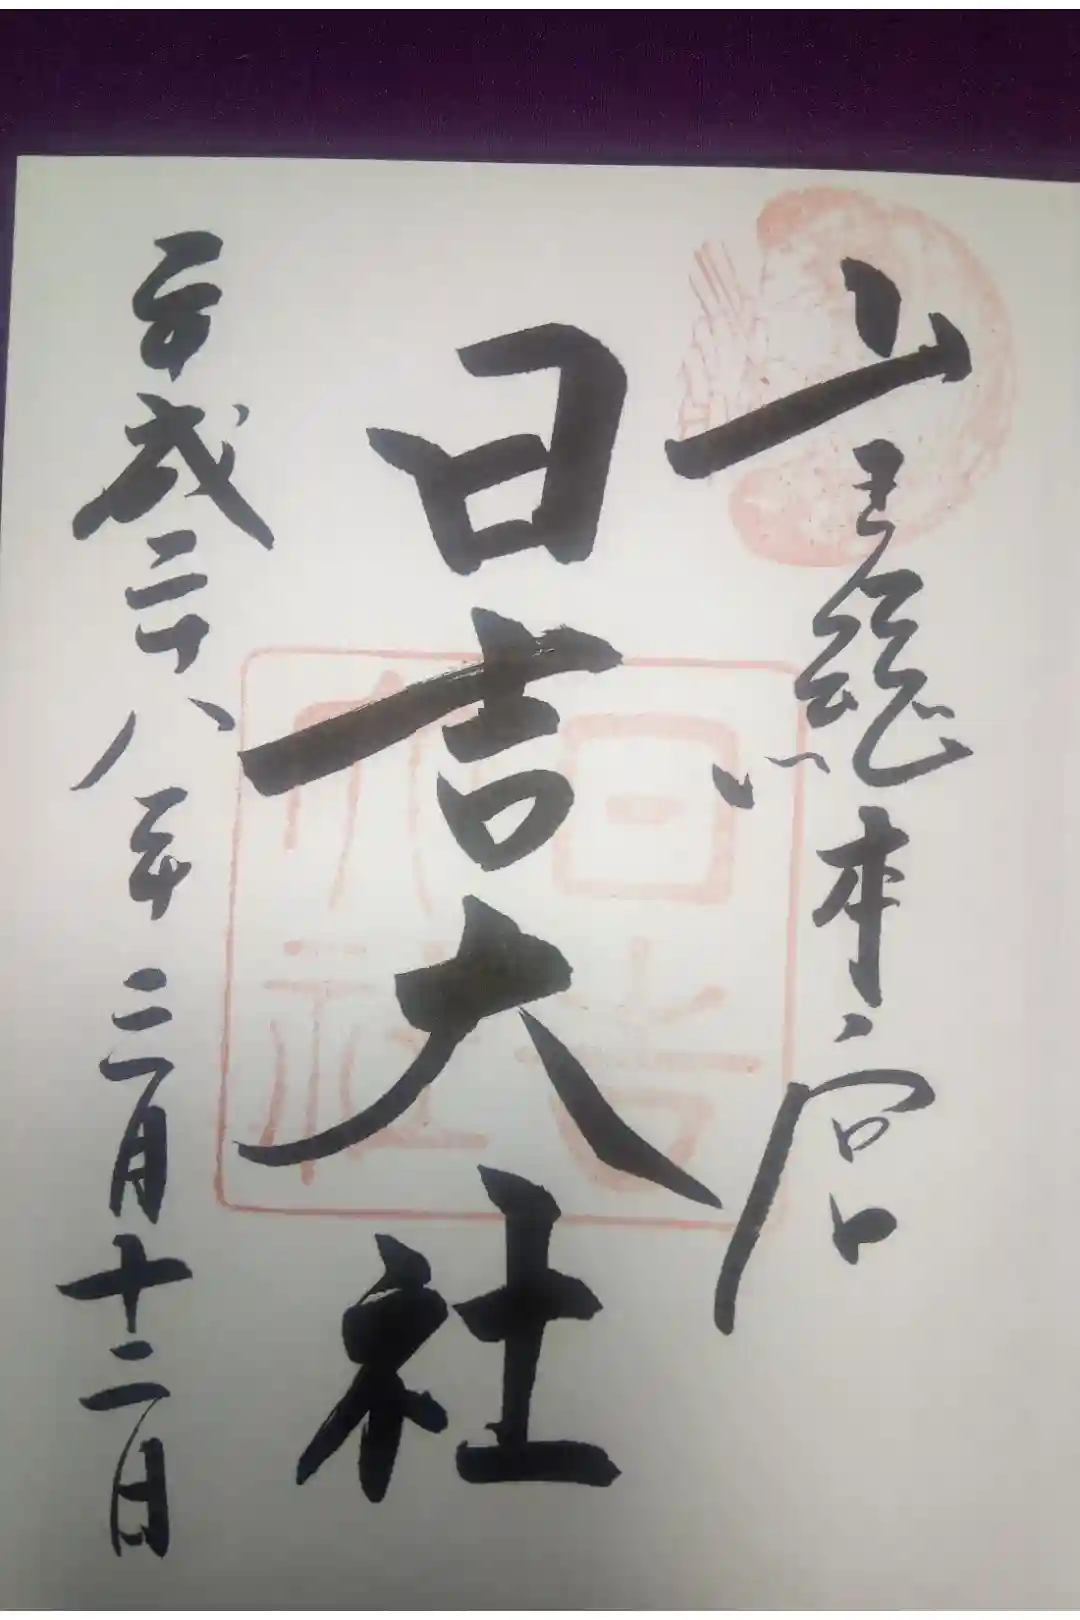 山王総本宮
日吉大社
平成二十八年三月十二日
日吉大社